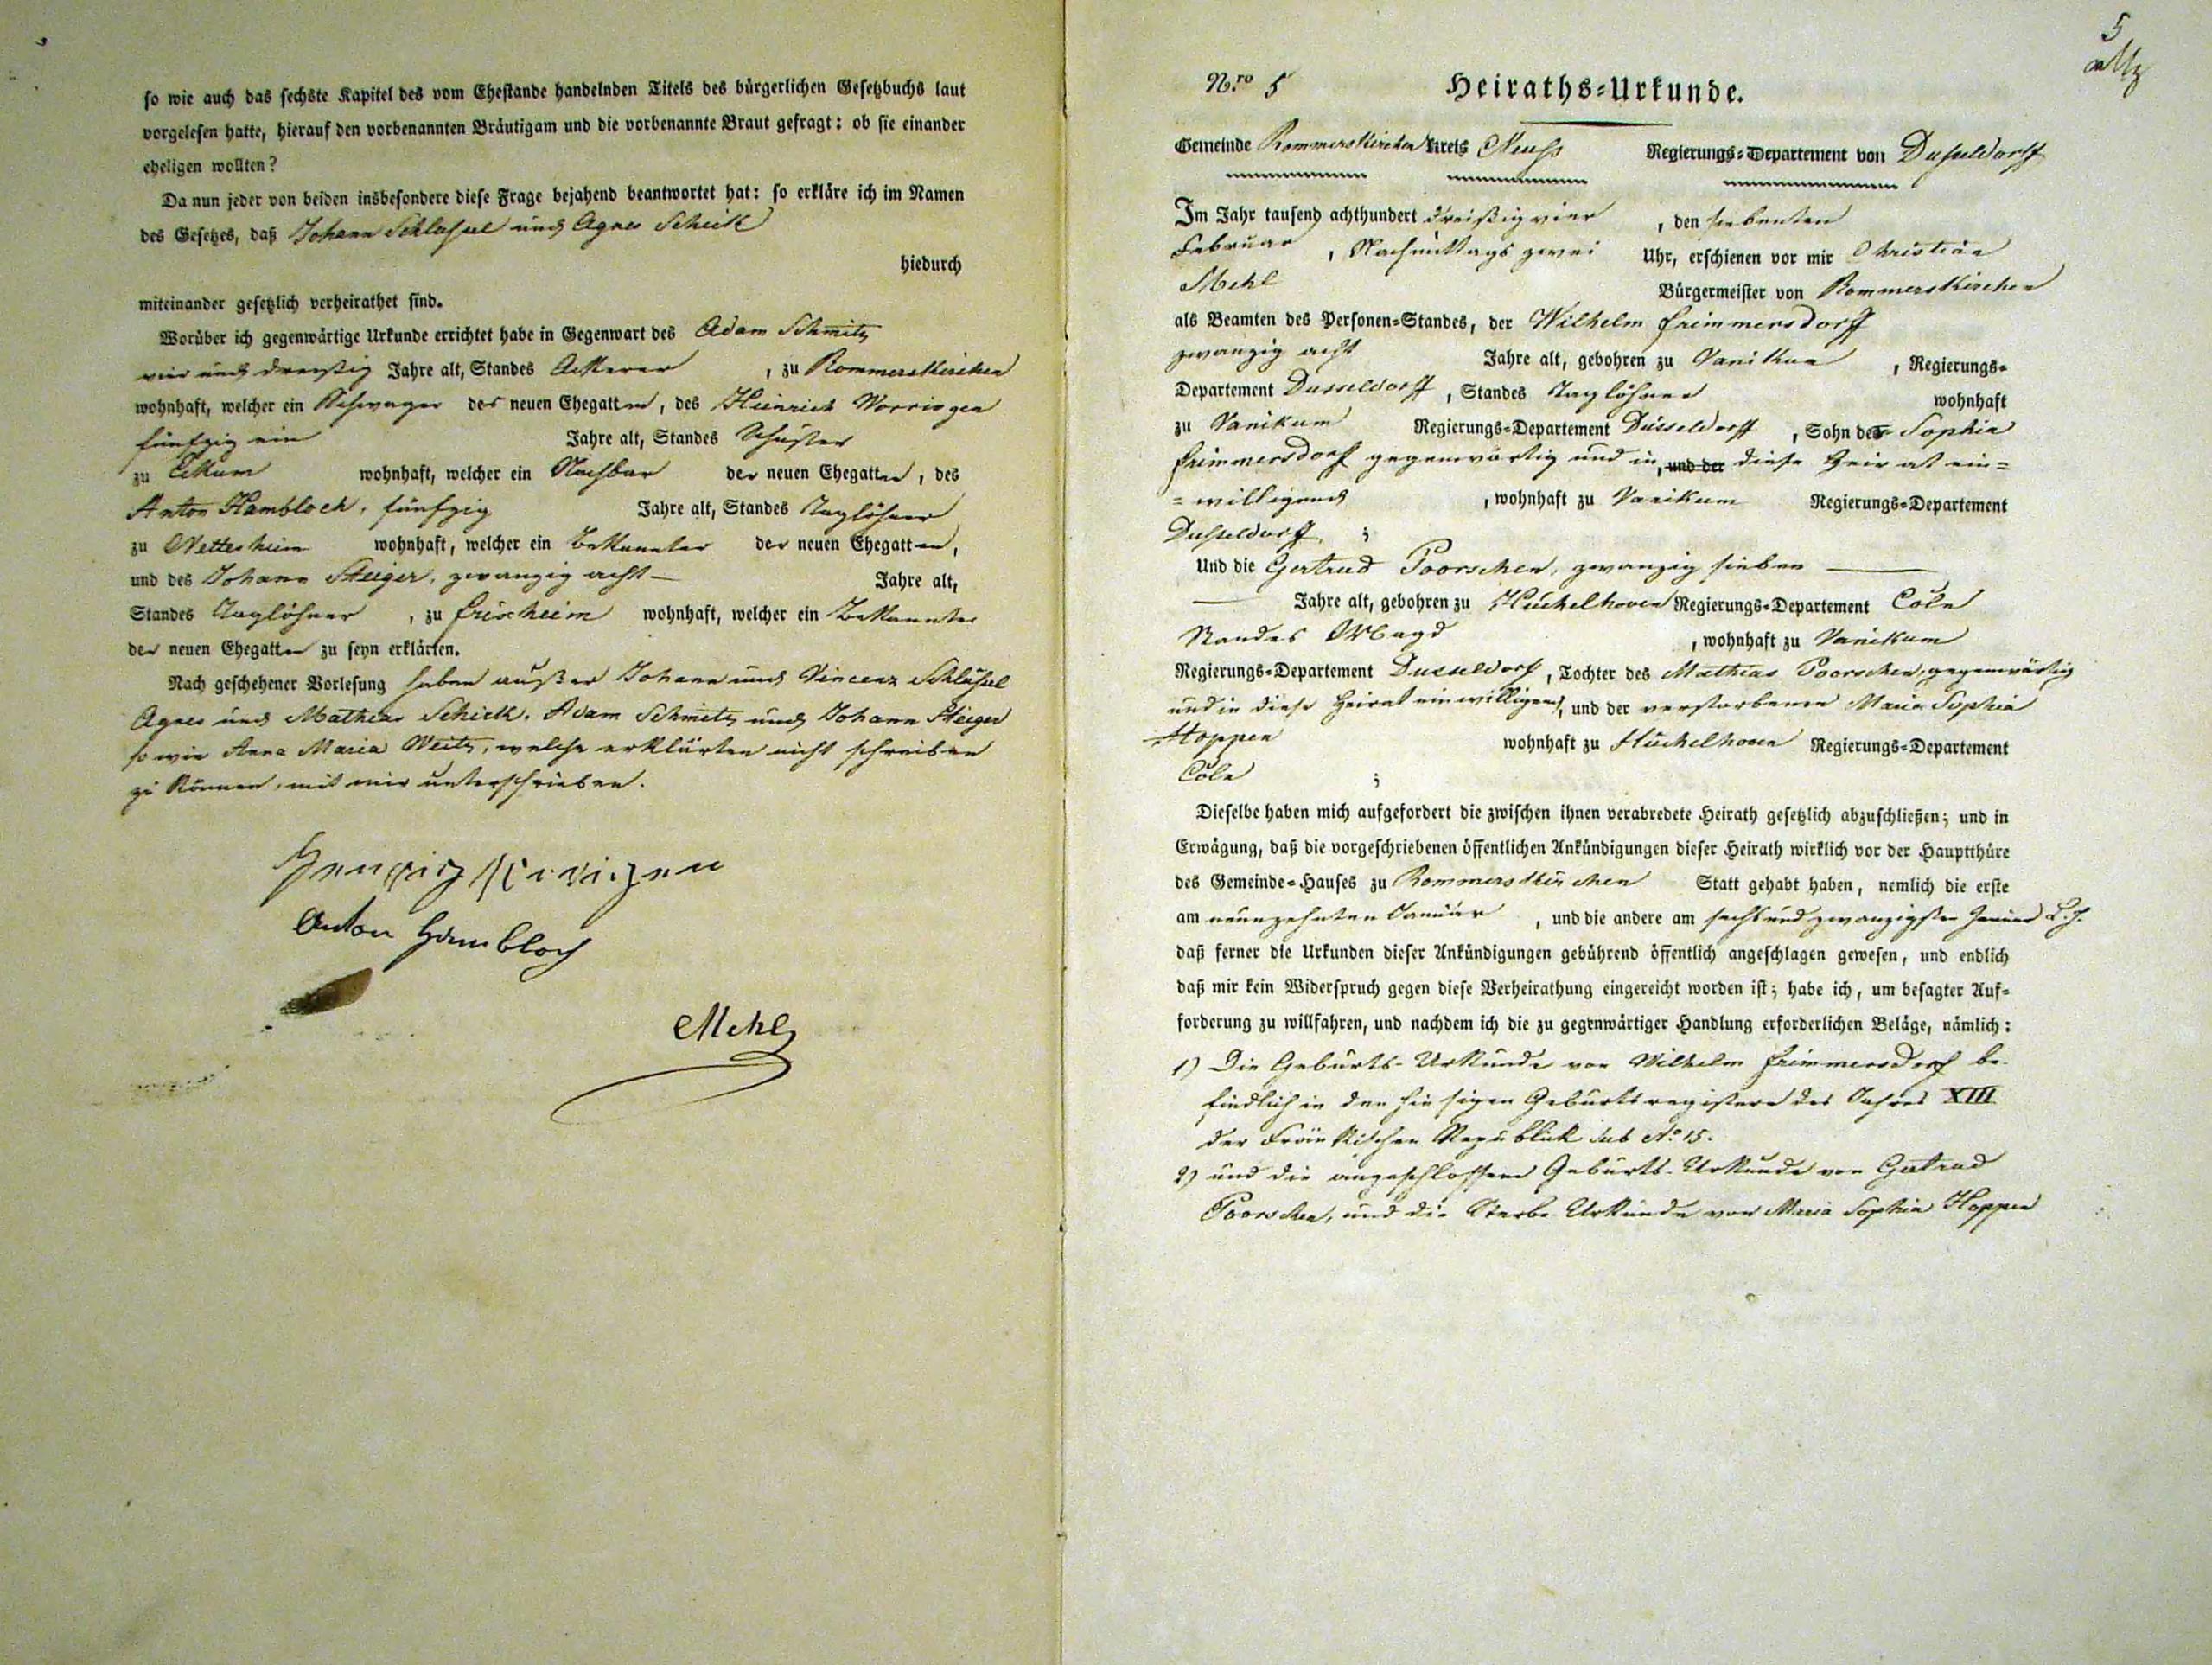 so wie auch das sechste Kapitel des vom Ehestande handelnden Titels des bürgerlichen Gesetzbuchs laut
vorgelesen hatte, hierauf den vorbenannten Bräutigam und die vorbenannte Braut gefragt: ob sie einander
eheligen wollten?
Da nun jeder von beiden insbesondere diese Frage bejahend beantwortet hat: so erkläre ich im Namen
des Gesetzes, daß Johann Schlüssel und Agnes Schick
hiedurch
miteinander gesetzlich verheirathet sind.
Worüber ich gegenwärtige Urkunde errichtet habe in Gegenwart des Adam Schmitz
vier und dreißig Jahre alt, Standes Ackerer , zu Rommerskirchen
wohnhaft, welcher ein Schwager des neuen Ehegatten, des Heinrich Worringen
fünfzig ein Jahre alt, Standes Schuster
zu Eckum wohnhaft, welcher ein Nachbar der neuen Ehegatten, des
Anton Hambloch, fünfzig Jahre alt, Standes Taglöhner
zu Nettesheim wohnhaft, welcher ein Bekannter der neuen Ehegatten,
und des Johann Steiger, zwanzig acht — Jahre alt,
Standes Taglöhner , zu Frixheim wohnhaft, welcher ein Bekannter
der neuen Ehegatten zu seyn erklärten.
Nach geschehener Vorlesung haben außer Johann und Vincenz Schlüssel
Agnes und Mathias Schick, Adam Schmitz und Johann Steiger
so wie Anna Maria Weitz, welche erklärten nicht schreiben
zu können, mit mir unterschrieben.
Anton Hambloch
Mehl
5
N.ro 5 Heiraths-Urkunde.
Gemeinde Rommerskirchen Kreis Neuss Regierungs-Departement von Dusseldorff
Im Jahr tausend achthundert dreißig vier , den siebenten
Februar , Nachmittags zwei Uhr, erschienen vor mir Christian
Mehl Bürgermeister von Rommerskirchen
als Beamten des Personen-Standes, der Wilhelm Frimmersdorff
zwanzig acht Jahre alt, gebohren zu Vanikum , Regierungs-
Departement Dusseldorff , Standes Taglöhner wohnhaft
zu Vanikum Regierungs-Departement Düsseldorff , Sohn der Sophia
Frimmersdorf gegenwärtig und in, und der diese Heirat ein=
=willigend , wohnhaft zu Vanikum Regierungs-Departement
Dusseldorff ;
Und die Gertrud Poorschen, zwanzig sieben —
— Jahre alt, gebohren zu Hüchelhoven Regierungs-Departement Cöln
Standes Magd , wohnhaft zu Vanikum
Regierungs-Departement Dusseldorf , Tochter des Mathias Poorschen, gegenwärtig
und in diese Heirat einwilligend, und der verstorbenen Maria Sophia
Hoppen wohnhaft zu Hüchelhoven Regierungs-Departement
Cöln ;
Dieselbe haben mich aufgefordert die zwischen ihnen verabredete Heirath gesetzlich abzuschließen; und in
Erwägung, daß die vorgeschriebenen öffentlichen Ankündigungen dieser Heirath wirklich vor der Hauptthüre
des Gemeinde-Hauses zu Rommerskirchen Statt gehabt haben, nemlich die erste
am neunzehnten Januar , und die andere am sechsundzwanzigsten Januar d. J.
daß ferner die Urkunden dieser Ankündigungen gebührend öffentlich angeschlagen gewesen, und endlich
daß mir kein Widerspruch gegen diese Verheirathung eingereicht worden ist; habe ich, um besagter Auf-
forderung zu willfahren, und nachdem ich die zu gegenwärtiger Handlung erforderlichen Beläge, nämlich:
1) Die Geburts-Urkunde von Wilhelm Frimmersdorf be
findlich in den hiesigen Geburtsregistern des Jahres XIII
der Fränkischen Republick sub No 15.
2) und die angeschlossene Geburts-Urkunde von Gertrud
Poorschen, und die Sterbe Urkunde von Maria Sophia Hoppen